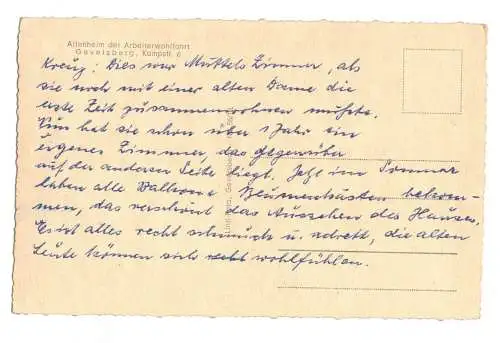 Altenheim der Arbeiterwohlfahrt
Gevelsberg, Kampstr. 6
Kreuz: Dies war Muttels Zimmer, als
sie noch mit einer alten Dame die
erste Zeit zusammenwohnen mußte.
Nun hat sie schon über 1 Jahr ein
eigenes Zimmer, das gegenüber
auf der anderen Seite liegt. Jetzt im Sommer
haben alle Balkone Blumenkästen bekom-
men, das verschönt das Aussehen des Hauses.
Es ist alles recht schmuck u. adrett, die alten
Leute können sich recht wohlfühlen.